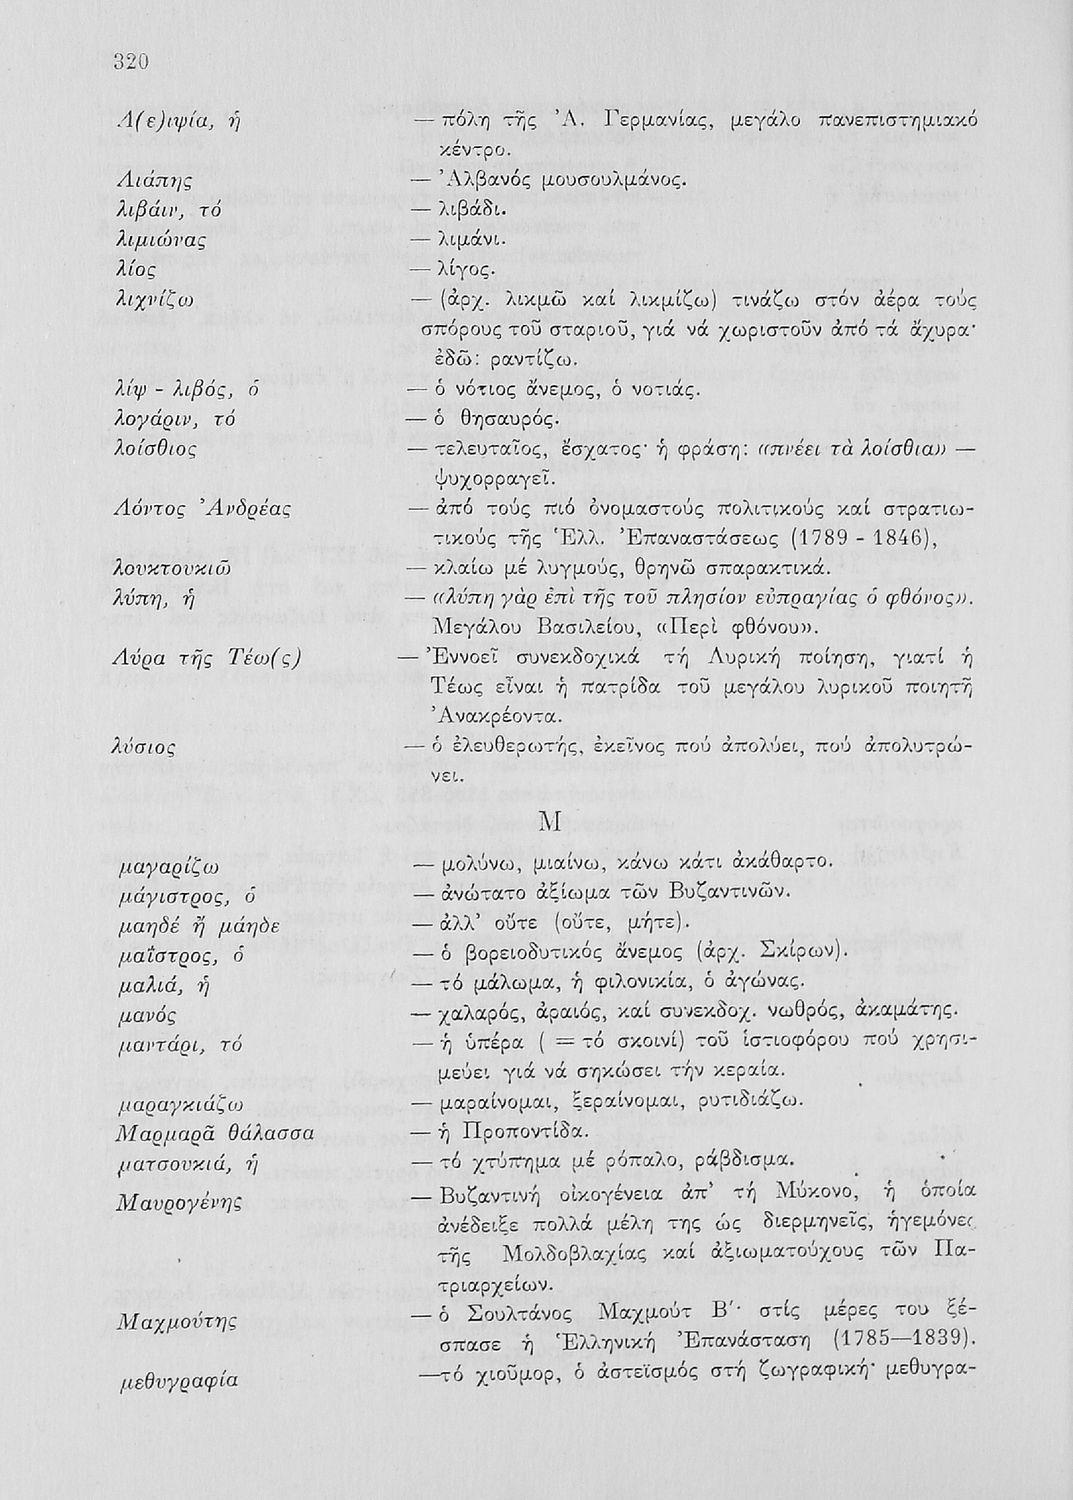 320
Λ(ε)ιψία, ἡ — πόλη τῆς Ἀ. Γερμανίας, μεγάλο πανεπιστημιακό
κέντρο.
Λιάπης — Ἀλβανός μουσουλμάνος.
λιβάιν, τό — λιβάδι.
λιμιώνας — λιμάνι.
λίος — λίγος.
λιχνίζω — (ἀρχ. λικμῶ καί λικμίζω) τινάζω στόν ἀέρα τούς
σπόρους τοῦ σταριοῦ, γιά νά χωριστοῦν ἀπό τά ἄχυρα·
ἐδῶ: ραντίζω.
λίψ - λιβός, ὁ — ὁ νότιος ἄνεμος, ὁ νοτιάς.
λογάριν, τό — ὁ θησαυρός.
λοίσθιος — τελευταῖος, ἔσχατος· ἡ φράση: «πνέει τὰ λοίσθια» —
ψυχορραγεῖ.
Λόντος Ἀνδρέας — ἀπό τούς πιό ὀνομαστούς πολιτικούς καί στρατιω-
τικούς τῆς Ἑλλ. Ἐπαναστάσεως (1789 - 1846),
λουκτουκιῶ — κλαίω μέ λυγμούς, θρηνῶ σπαρακτικά.
λύπη, ἡ — «λύπη γὰρ ἐπὶ τῆς τοῦ πλησίον εὐπραγίας ὁ φθόνος».
Μεγάλου Βασιλείου, «Περὶ φθόνου».
Λύρα τῆς Τέω(ς) — Ἐννοεῖ συνεκδοχικά τή Λυρική ποίηση, γιατί ἡ
Τέως εἶναι ἡ πατρίδα τοῦ μεγάλου λυρικοῦ ποιητῆ
Ἀνακρέοντα.
λύσιος — ὁ ἐλευθερωτής, ἐκεῖνος πού ἀπολύει, πού ἀπολυτρώ-
νει.
Μ
μαγαρίζω — μολύνω, μιαίνω, κάνω κάτι ἀκάθαρτο.
μάγιστρος, ὁ — ἀνώτατο ἀξίωμα τῶν Βυζαντινῶν.
μαηδέ ἤ μάηδε — ἀλλ’ οὔτε (οὔτε, μήτε).
μαΐστρος, ὁ — ὁ βορειοδυτικός ἄνεμος (ἀρχ. Σκίρων).
μαλιά, ἡ — τό μάλωμα, ἡ φιλονικία, ὁ ἀγώνας.
μανός — χαλαρός, ἀραιός, καί συνεκδοχ. νωθρός, ἀκαμάτης.
μαντάρι, τό — ἡ ὑπέρα ( = τό σκοινί) τοῦ ἱστιοφόρου πού χρησι-
μεύει γιά νά σηκώσει τήν κεραία.
μαραγκιάζω — μαραίνομαι, ξεραίνομαι, ρυτιδιάζω.
Μαρμαρᾶ θάλασσα — ἡ Προποντίδα.
ματσουκιά, ἡ — τό χτύπημα μέ ρόπαλο, ράβδισμα.
Μαυρογένης — Βυζαντινή οἰκογένεια ἀπ’ τή Μύκονο, ἡ ὁποία
ἀνέδειξε πολλά μέλη της ὡς διερμηνεῖς, ἡγεμόνες
τῆς Μολδοβλαχίας καί ἀξιωματούχους τῶν Πα-
τριαρχείων.
Μαχμούτης — ὁ Σουλτάνος Μαχμούτ Β΄· στίς μέρες του ξέ-
σπασε ἡ Ἑλληνική Ἐπανάσταση (1785—1839).
μεθυγραφία —τό χιοῦμορ, ὁ ἀστεϊσμός στή ζωγραφική· μεθυγρα-